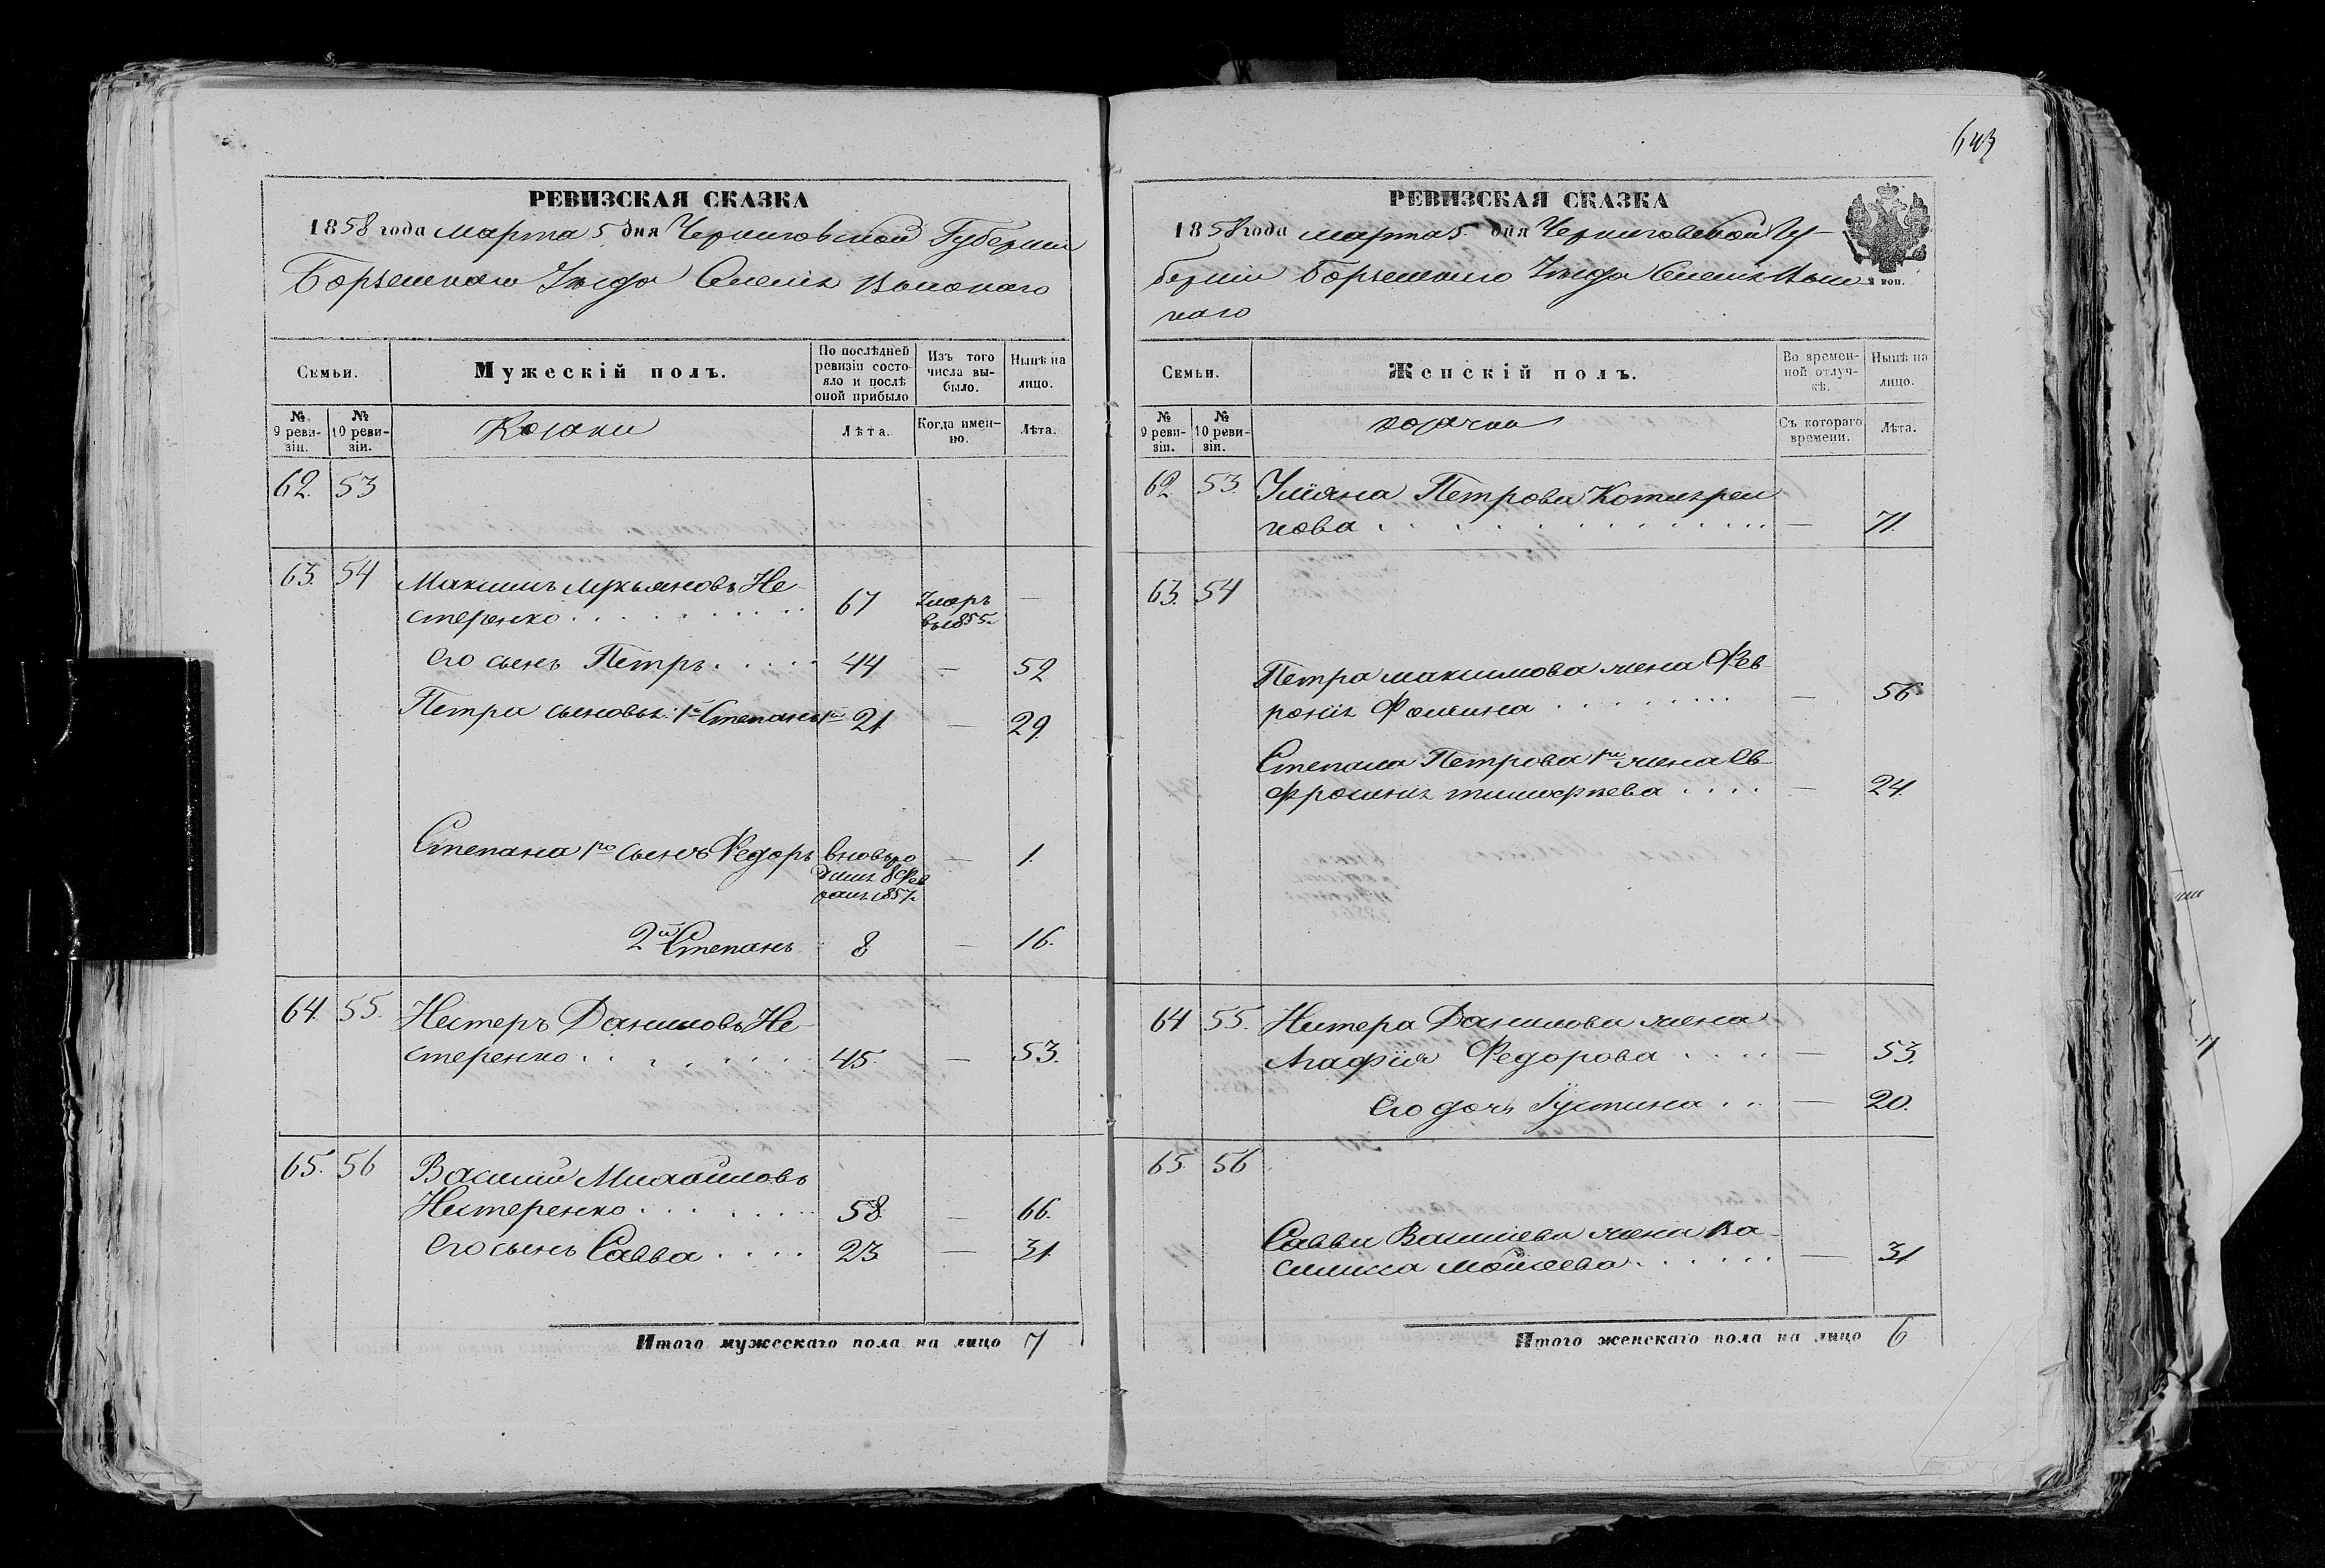 643
РЕВИЗСКАЯ СКАЗКА
1858 года марта 5 дня Черниговской Губернии
Борзенского Уезда
Семьи.
Мужескій полъ.
По послѣдней ревизіи состояло и послѣ оной прибыло
Изъ того числа выбыло.
Нынѣ на лицо.
№ 9 ревизіи.
№ 10 ревизіи.
Козаки
Лѣта.
Когда именно.
Лѣта.
62. 53
63. 54 Максимъ Лукьяновъ Не-
стеренко 67 Умеръ въ 1855 г. —
Его сынъ Петръ 44 — 52
Петра сыновья: 1й Степанъ 1й 21 — 29.
Степана 1го сынъ Федоръ вновь ро 1.
1857
2й Степанъ 8 — 16.
64. 55. Нестеръ Даниловъ Не-
стеренко 45. — 53.
65. 56 Василий Михайловъ
Нестеренко 58 — 66.
Его сынъ Савва 23 — 31.
Итого мужескаго пола на лицо 7
РЕВИЗСКАЯ СКАЗКА
1858 года марта 5 дня Черниговской Гу-
бернии Борзенского Уезда
каго
коп.
Семьи.
Женскій полъ.
Во временной отлучкѣ.
Нынѣ на лицо.
№ 9 ревизіи.
№ 10 ревизіи.
козачки
Съ котораго времени.
Лѣта.
62. 53. Улияна Петрова
кова — 71.
63. 54
Петра Максимова жена Фев-
рония Фомина — 56
Степана Петрова 1го жена Ев-
фросиния Тимофеева — 24.
64 55. Нестера Данилова жена
Агафия Федорова — 53.
Его дочь Iустина — 20.
65. 56
Саввы Васильева жена Ва-
силиса Мойсеева — 31
Итого женскаго пола на лицо 6